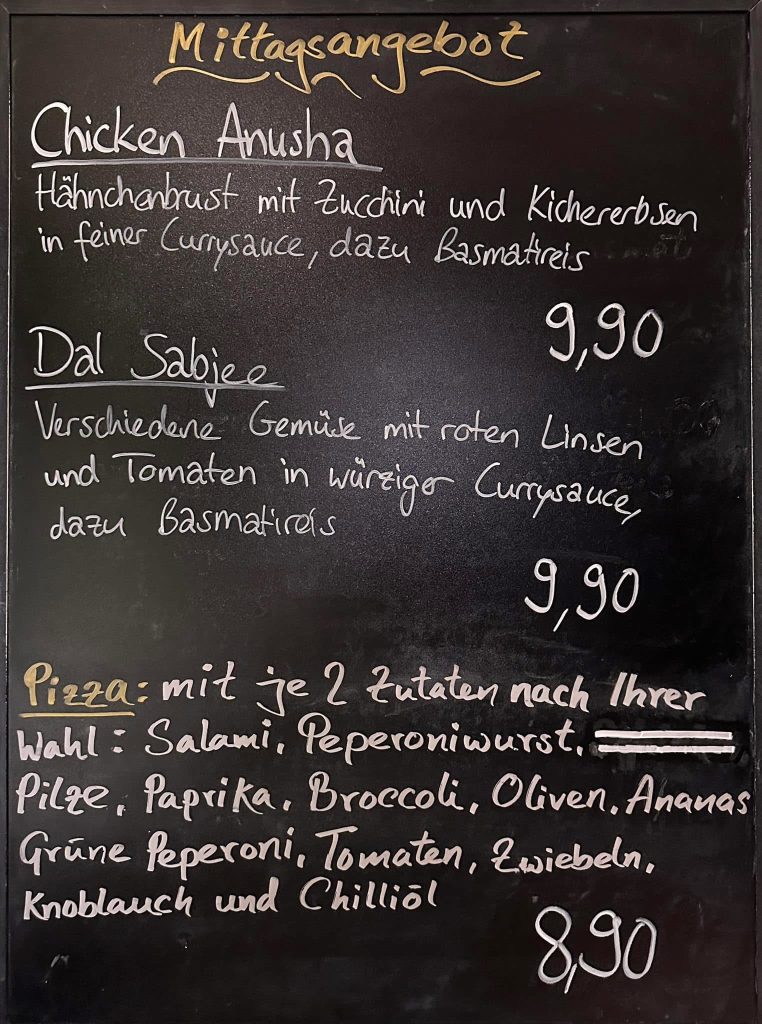 Mittagsangebot
Chicken Anusha
Hähnchenbrust mit Zucchini und Kichererbsen
in feiner Currysauce, dazu Basmatireis
9,90
Dal Sabjee
Verschiedene Gemüse mit roten Linsen
und Tomaten in würziger Currysauce,
dazu Basmatireis
9,90
Pizza: mit je 2 Zutaten nach Ihrer
Wahl: Salami, Peperoniwurst,
Pilze, Paprika, Broccoli, Oliven, Ananas
Grüne Peperoni, Tomaten, Zwiebeln,
Knoblauch und Chilliöl
8,90